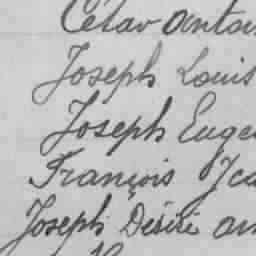 Joseph Louis
Joseph Euge
François Jea
Joseph Désiré an